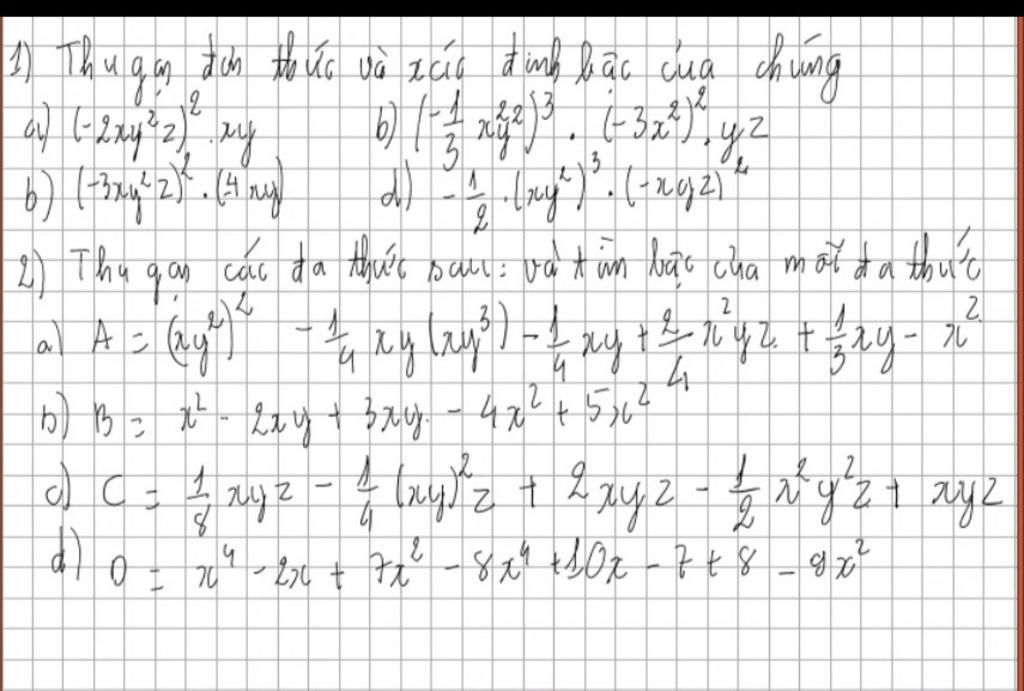 1) Thu gọn đơn thức và xcíc định bậc của chúng
a) (-2xy²z)². xy b) (-1/3 x²y²)³ . (-3x²)². yz
b) (-3xy²z)² . (4xy) d) -1/2 .(xy²)³ . (-xyz)²
2) Thu gọn các đa thức sau: và tìm bậc của mỗi đa thức
a) A = (xy²)² - 1/4 xy (xy³) - 1/4 xy + 2/4 x²yz + 1/3 xy - x²
b) B = x² - 2xy + 3xy. - 4x² + 5x²
c) C = 1/8 xyz - 1/4 (xy)²z + 2xyz - 1/2 x²y²z + xyz
d) D = x⁴ - 2x + 7x² - 8x⁴ + 10x - 7 + 8 - 9x²